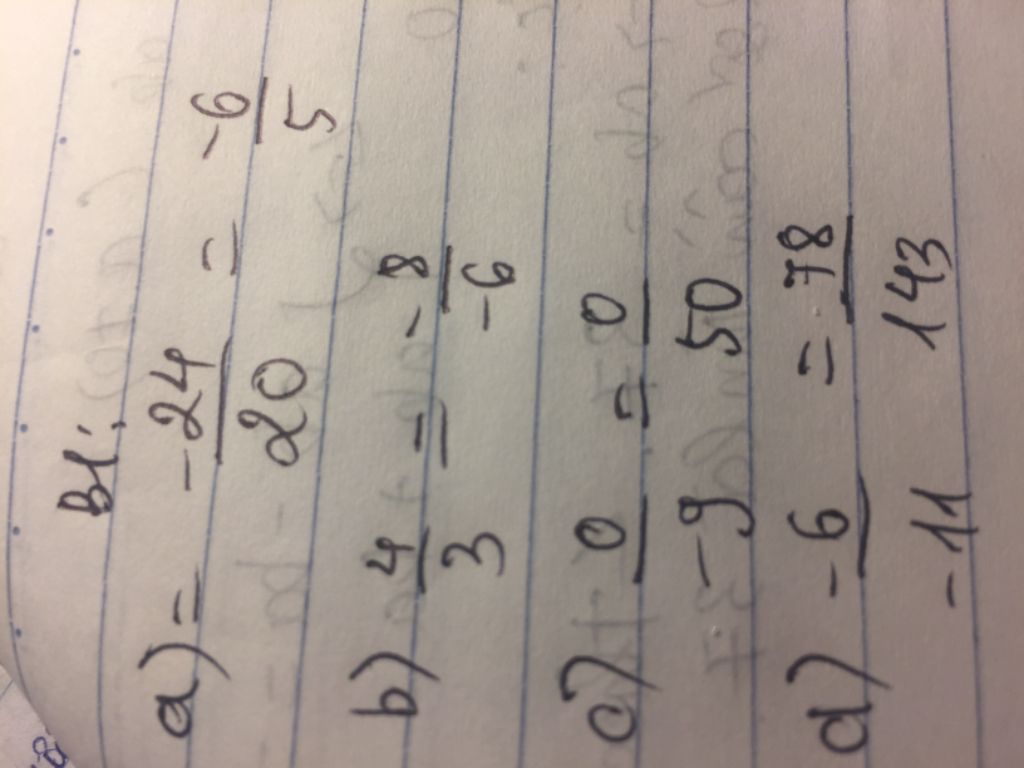 B1:
a) = -24/20 = -6/5
b) 4/3 = -8/-6
c) 0/-9 = 0/50
d) -6/-11 = 78/143